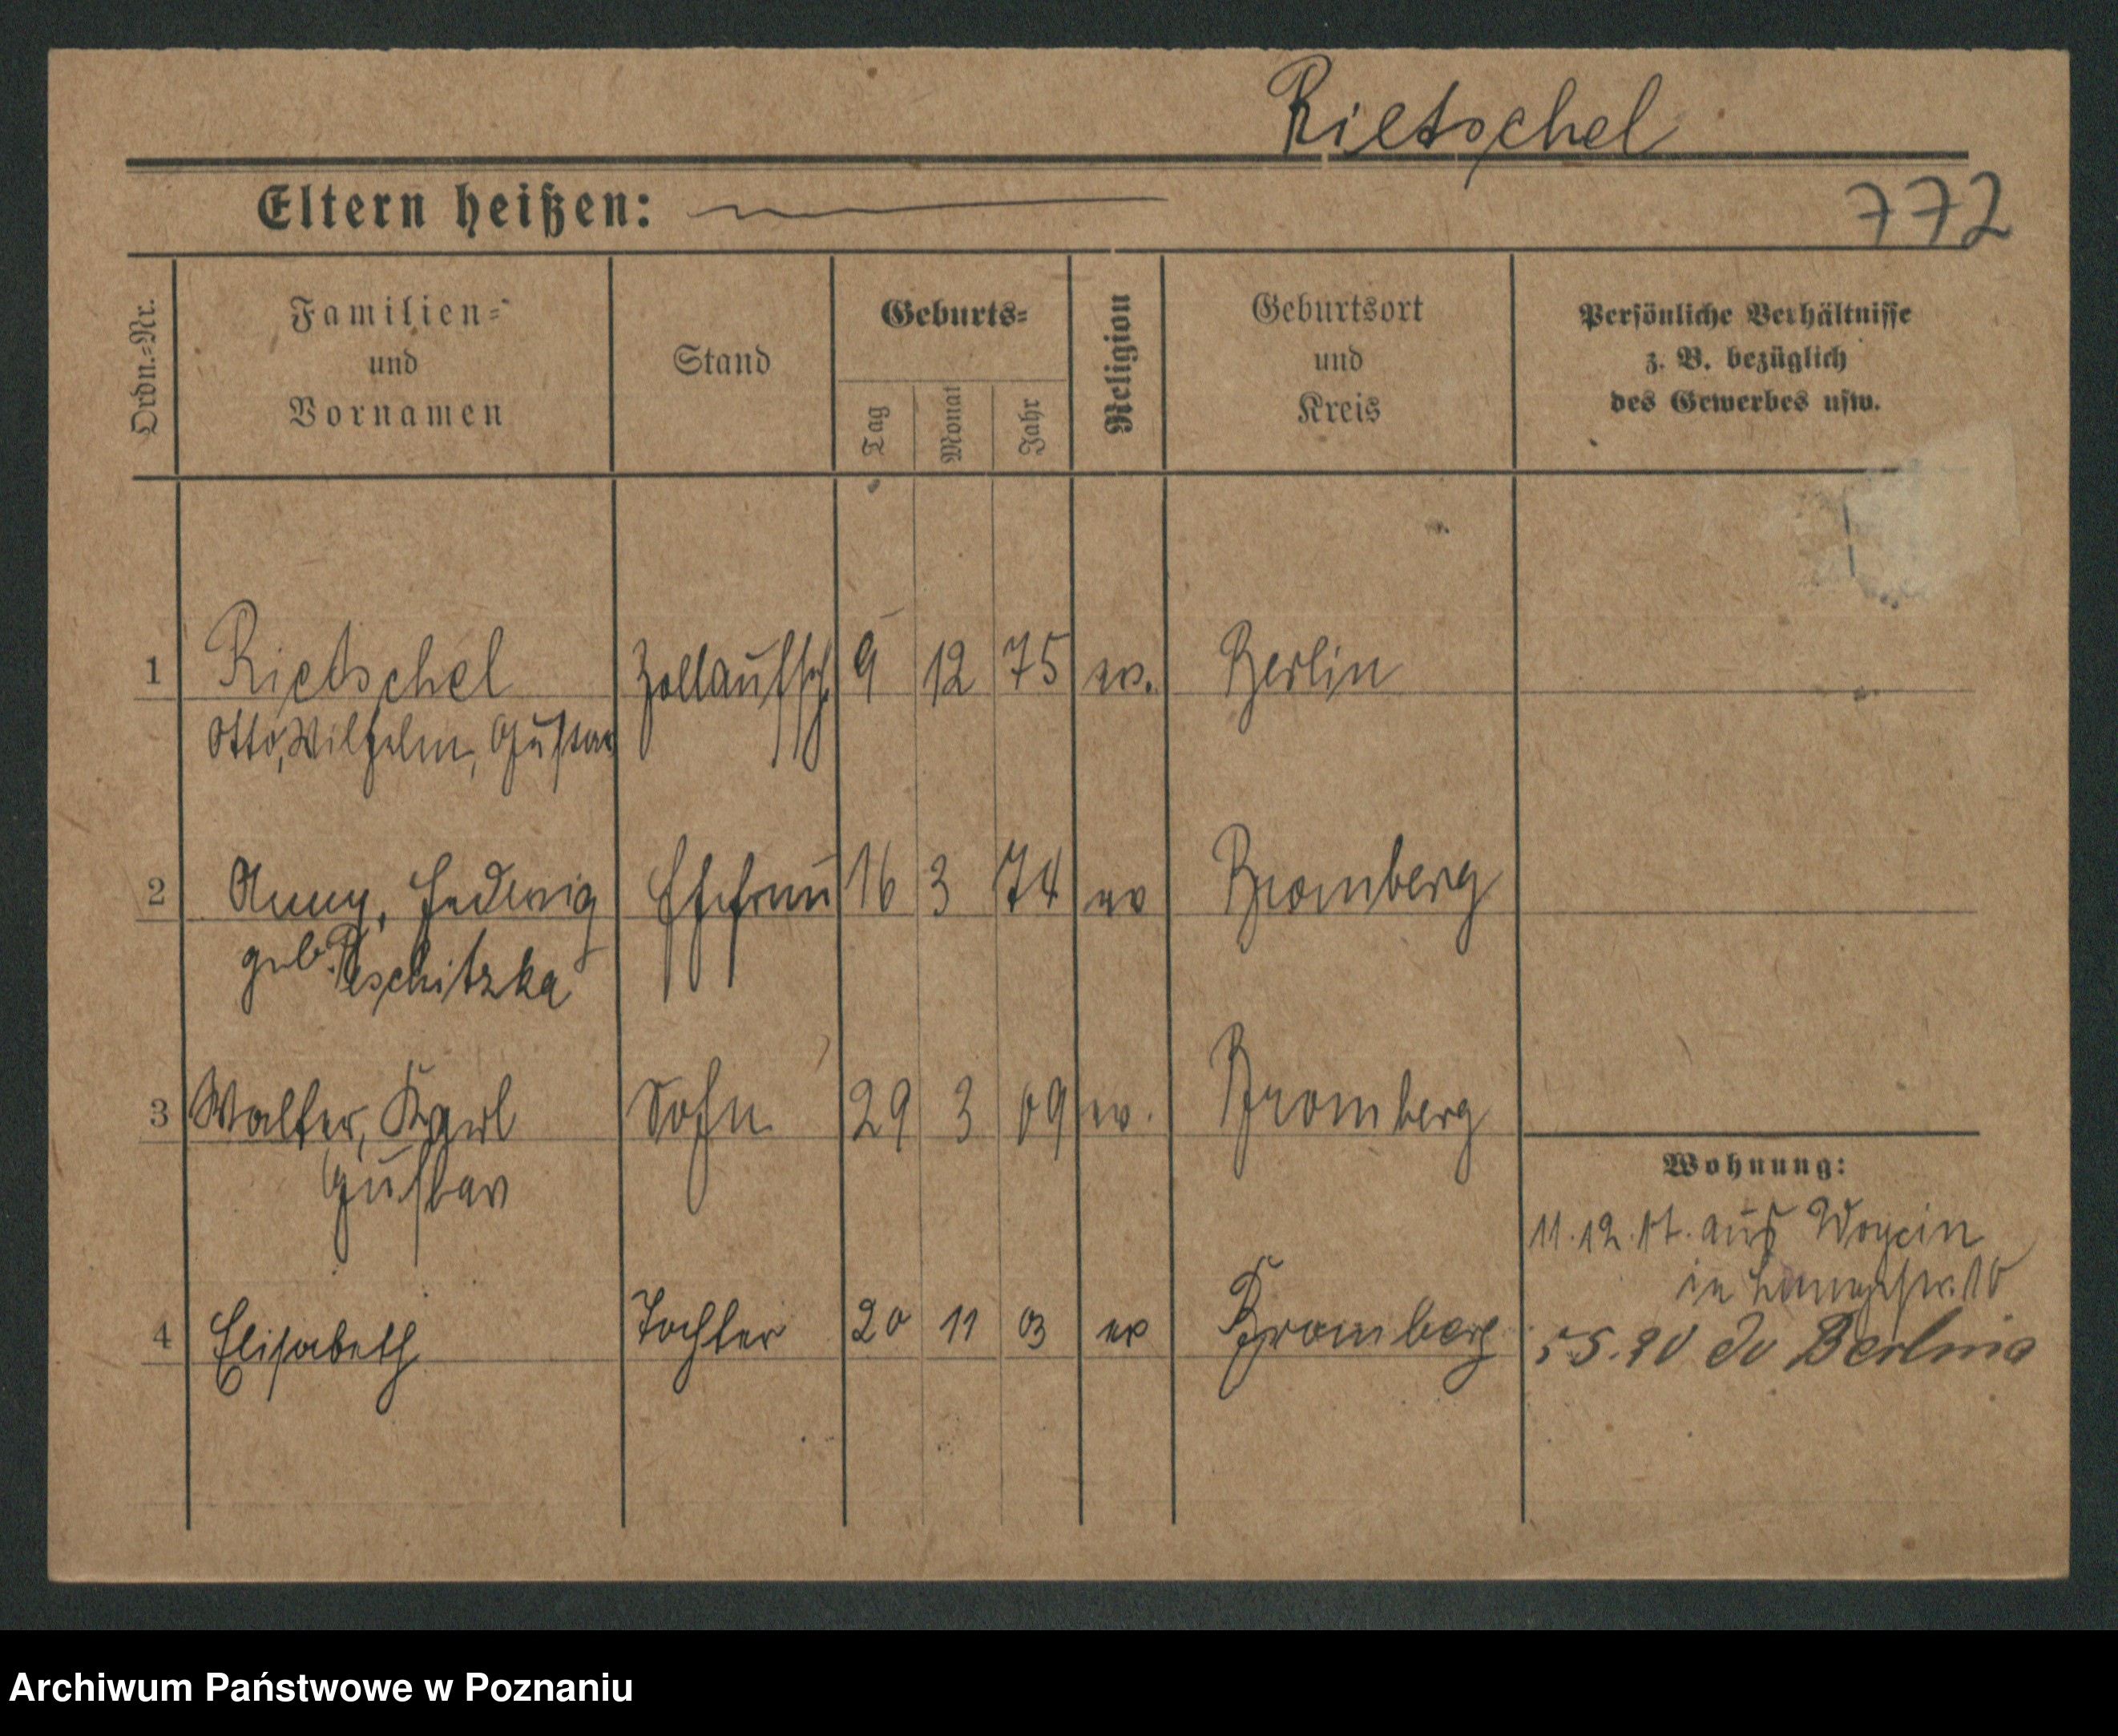 Rietschel
Eltern heißen:
772
Ordn.=Nr.
Familien=
und
Vornamen
Stand
Geburts=
Tag
Monat
Jahr
Religion
Geburtsort
und
Kreis
Persönliche Verhältnisse
z. B. bezüglich
des Gewerbes usw.
1 Rietschel Zollaufsch. 9 12 75 ev. Berlin
Otto, Wilhelm, Gustav
2 Anny, Hedwig Ehefrau 16 3 74 ev Bromberg
geb. Peschitzka
3 Walter, Karl Sohn 29 3 09 ev. Bromberg
Gustav
Wohnung:
11.12. aus Woycin
in 10
4 Elisabeth Tochter 20 11 03 ev Bromberg
Berlina
Archiwum Państwowe w Poznaniu